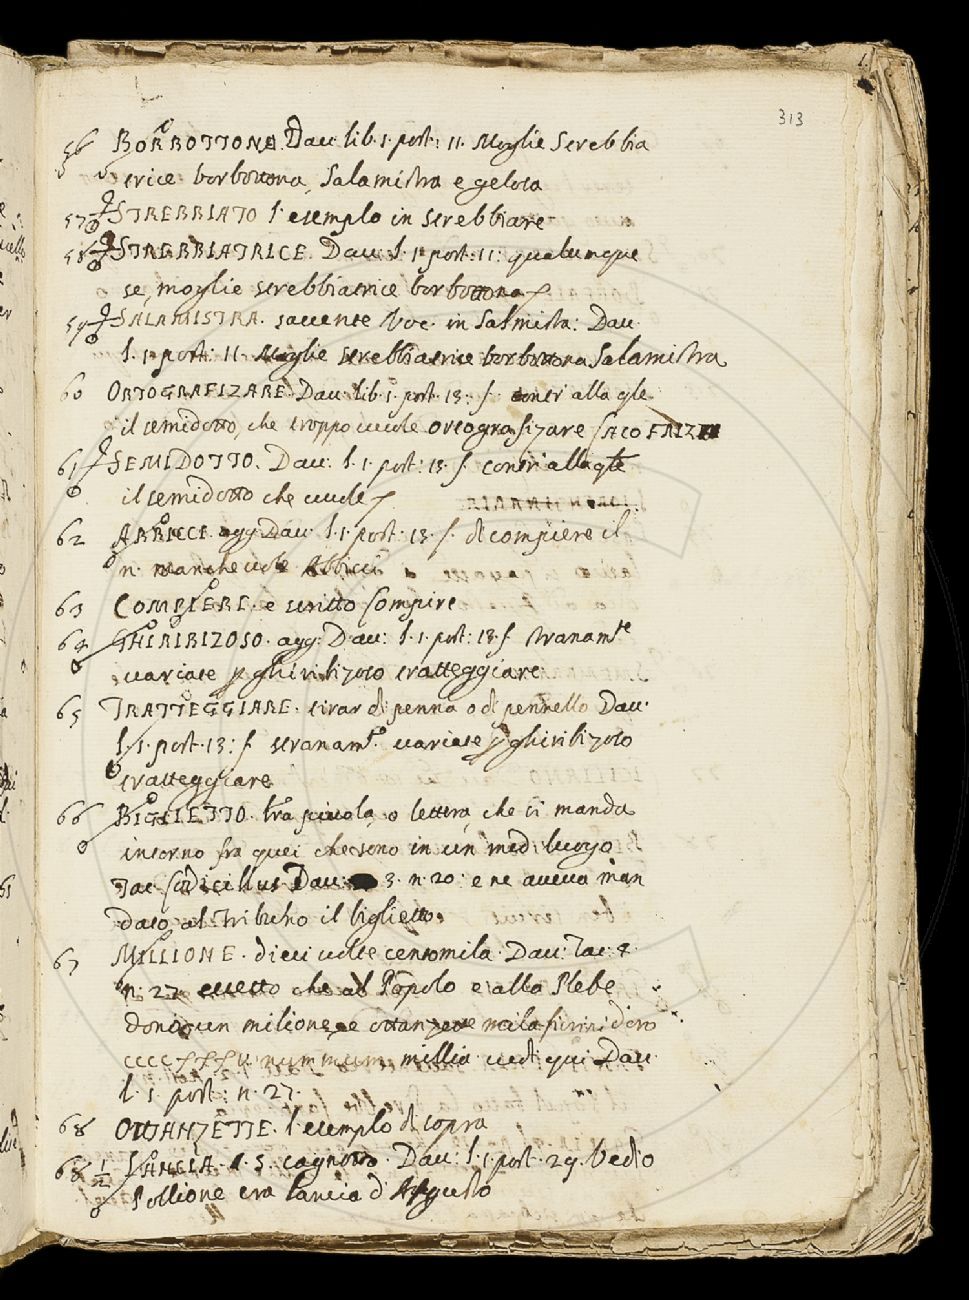 313
56 BORBOTTONA. Dau: lib. 1. post: 11. Moglie Strebbia
trice borbottona, Salamistra e gelosa
57 STREBBIATO l'esemplo in strebbiare
58 STREBBIATRICE. Dau: l. 1. post: 11: qualunque
se, moglie strebbiatrice borbottona
59 SALAMISTRA. saccente Voc. in Salmista: Dau.
l. 1. post: 11. Moglie strebbiatrice borbottona Salamistra
60 ORTOGRAFIZARE. Dau: lib. 1. post. 13. contr' alla qle
il semidotto, che troppo vuole ortografizare
61 SEMIDOTTO. Dau: l. 1. post: 13. contr' alla qle
il semidotto che vuole
62 ABBICCI. agg. Dau: l. 1. post: 13. di compiere il
n. manchevole Abbiccì
63 COMPIERE. e scritto Compire
64 GHIRIBIZOSO. agg: Dau: l. 1. post: 13. stranamte
variate ghiribizoso tratteggiare
65 TRATTEGGIARE. tirar di penna o di pennello Dau.
l. 1. post. 13: stranamte. variate ghiribizoso
tratteggiare
66 BIGLIETTO. o lettera, che si manda
intorno fra quei che sono in un med. luogo
Tac. Codicillus Dau: 3. n. 20: e ne aveva man
dato al Tribuno il biglietto.
67 MILLIONE. dieci volte centomila. Dau: Tac: 8.
n. 27. eccetto che al Popolo e alla Plebe
donò un milione e ottanzette mila fiorini d'oro
nummum millia vedi qui Dau.
l. 1. post: n. 27.
68 OTTANZETTE. l'esemplo di sopra
68 1/2 LANCIA. S. cagnotto. Dau: l. 1. post. 29. Vedio
Pollione era lancia d'Augusto